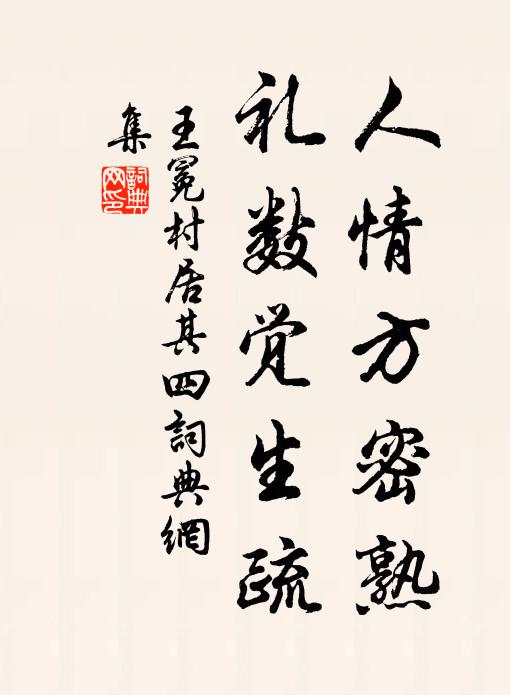 人情方密熟
礼数觉生疏
王冕村居其四詞典網
集
詞典
网印